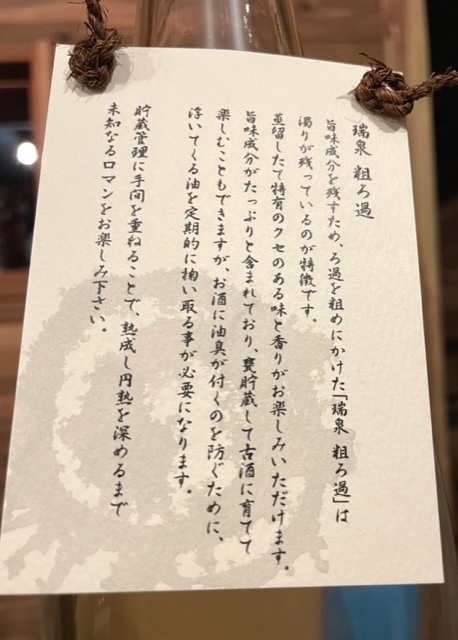 瑞泉 粗ろ過
旨味成分を残すため、ろ過を粗めにかけた「瑞泉 粗ろ過」は
濁りが残っているのが特徴です。
蒸留したて特有のクセのある味と香りがお楽しみいただけます。
旨味成分がたっぷりと含まれており、甕貯蔵して古酒に育てて
楽しむこともできますが、お酒に油臭が付くのを防ぐために、
浮いてくる油を定期的に掬い取る事が必要になります。
貯蔵管理に手間を重ねることで、熟成し円熟を深めるまで
未知なるロマンをお楽しみ下さい。